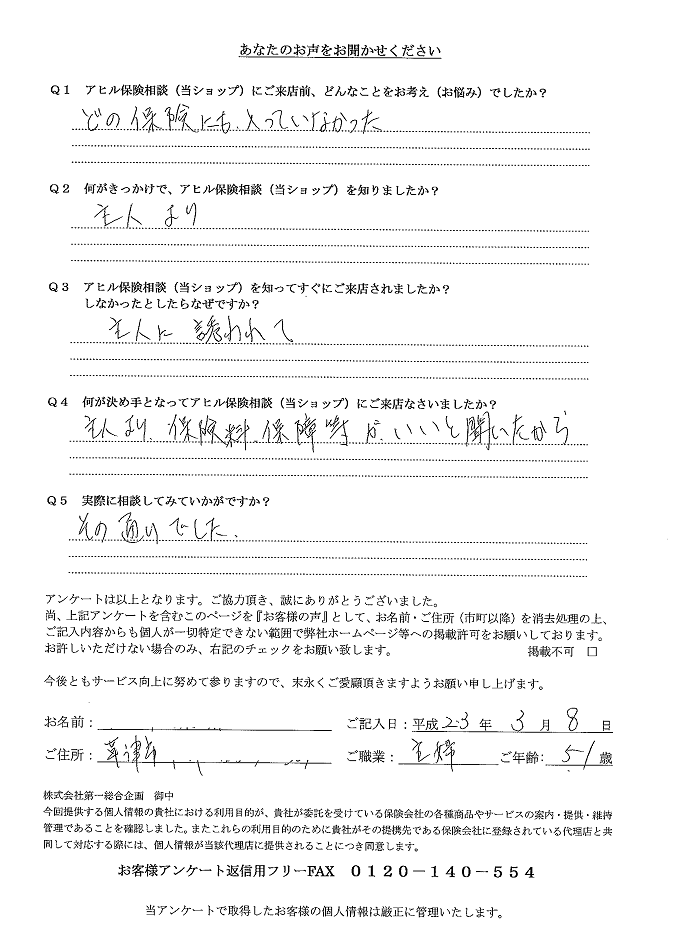 あなたのお声をお聞かせください
Q1 アヒル保険相談（当ショップ）にご来店前、どんなことをお考え（お悩み）でしたか？
どの保険にも入っていなかった
Q2 何がきっかけで、アヒル保険相談（当ショップ）を知りましたか？
主人より
Q3 アヒル保険相談（当ショップ）を知ってすぐにご来店されましたか？
しなかったとしたらなぜですか？
主人に誘われて
Q4 何が決め手となってアヒル保険相談（当ショップ）にご来店なさいましたか？
主人より、保険料、保障等が、いいと聞いたから
Q5 実際に相談してみていかがですか？
その通りでした。
アンケートは以上となります。ご協力頂き、誠にありがとうございました。
尚、上記アンケートを含むこのページを『お客様の声』として、お名前・ご住所（市町以降）を消去処理の上、
ご記入内容からも個人が一切特定できない範囲で弊社ホームページ等への掲載許可をお願いしております。
お許しいただけない場合のみ、右記のチェックをお願い致します。 掲載不可 □
今後ともサービス向上に努めて参りますので、末永くご愛顧頂きますようお願い申し上げます。
お名前： ご記入日：平成23年 3月 8日
ご住所：草津市 ご職業：主婦 ご年齢：51歳
株式会社第一総合企画 御中
今回提供する個人情報の貴社における利用目的が、貴社が委託を受けている保険会社の各種商品やサービスの案内・提供・維持
管理であることを確認しました。またこれらの利用目的のために貴社がその提携先である保険会社に登録されている代理店と共
同して対応する際には、個人情報が当該代理店に提供されることにつき同意します。
お客様アンケート返信用フリーFAX 0120－140－554
当アンケートで取得したお客様の個人情報は厳正に管理いたします。